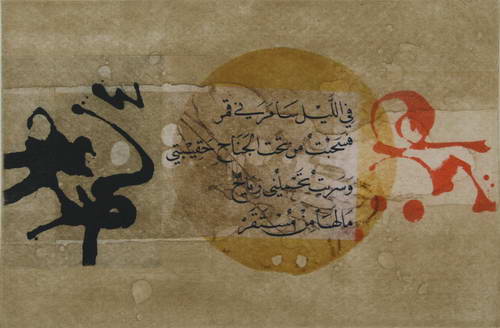 في اللَّيْل سَامَرَني قمر
فسَحَبْتُ من تحْت الجَنَاح حَقيبَتي
وَسَريْتُ تحْمِلُني رِيَاحٌ
مَالهَا مِنْ مُسْتَقَرْ